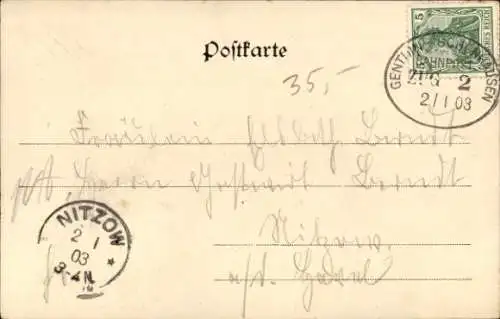 5
Postkarte
GENTHIN-SCHÖNHAUSEN
BAHNPOST
ZUG 2
2/1 03
35,-
Fräulein Elsbeth Berndt
Herrn Gastwirt Berndt
Nitzow
a/d. Havel
NITZOW
2 1
03
3-4N.